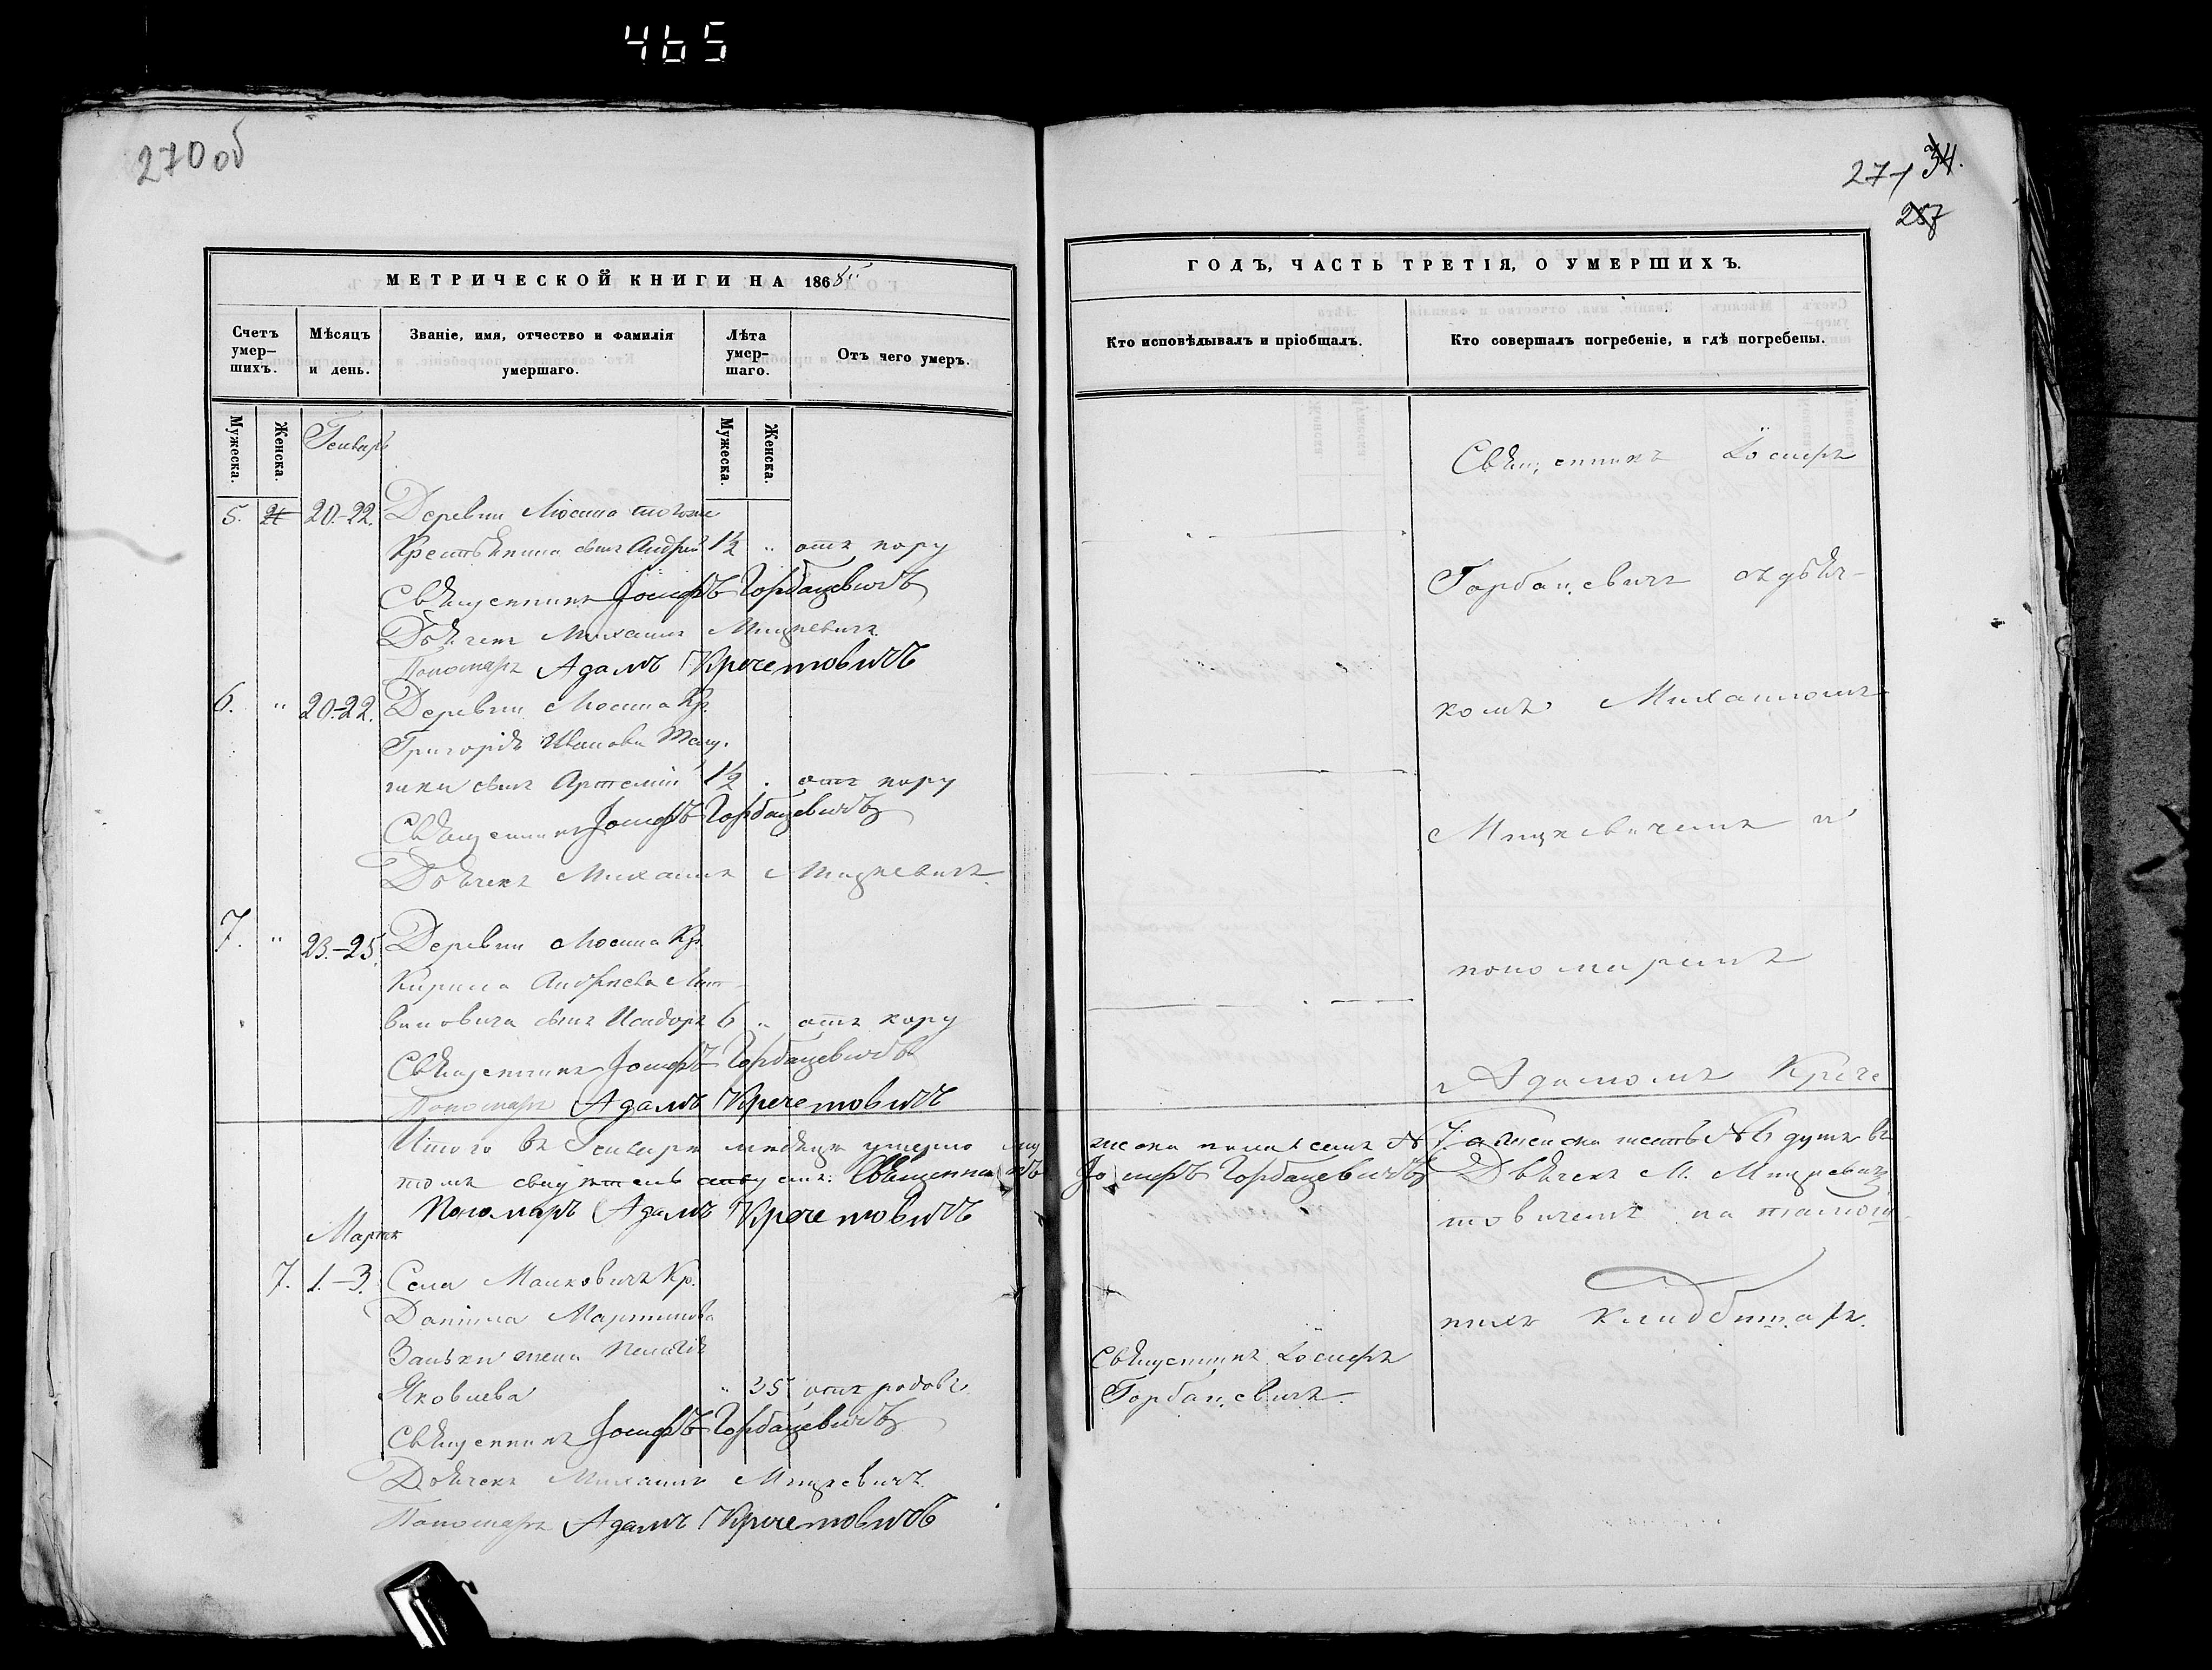 465
270 об
271 34.
267
МЕТРИЧЕСКОЙ КНИГИ НА 1868
Счетъ умер-шихъ.
Мѣсяцъ и день.
Званіе, имя, отчество и фамилія умершаго.
Лѣта умер-шаго.
Отъ чего умеръ.
Мужеска.
Женска.
Мужеска.
Женска.
Генварь
5. 20.-22. Деревни
Крестьянина сынъ Андрей 1½ " отъ кору
Священникъ Іосифъ Горбацевичъ
Дьячекъ Михаилъ Мицкевичъ.
Пономарь Адамъ Кречетовичъ
6. " 20.-22. Деревни Кр.
Григорія Иванова
сынъ Артемій 1½ . отъ кору
Священникъ Іосифъ Горбацевичъ
Дьячекъ Михаилъ Мицкевичъ.
7. " 23.-25. Деревни Кр.
Кирила Андреева Лит-
виновича сынъ Исидоръ 6 " отъ кору
Священникъ Іосифъ Горбацевичъ
Пономарь Адамъ Кречетовичъ
Итого въ Генварѣ мѣсяцѣ умерло му
томъ Священникъ
Пономарь Адамъ Кречетовичъ
Мартъ
7. 1.-3. Села Малковичъ Кр.
Даніила Мартинова
Заньки жена Пелагія
Яковлева " 35 отъ родовъ.
Священникъ Іосифъ Горбацевичъ
Дьячекъ Михаилъ Мицкевичъ.
Пономарь Адамъ Кречетовичъ
ГОДЪ, ЧАСТЬ ТРЕТІЯ, О УМЕРШИХЪ.
Кто исповѣдывалъ и пріобщалъ.
Кто совершалъ погребеніе, и гдѣ погребены.
Священникъ Іосифъ
Горбацевичъ съ дьяч-
комъ Михаиломъ
Мицкевичемъ и
пономаремъ
Адамомъ Крече
жеска пола семь № 7. а женска шесть № 6 душъ въ
Іосифъ Горбацевичъ Дьячекъ М. Мицкевичъ
товичемъ на
кладбищахъ.
Священникъ Іосифъ
Горбацевичъ.